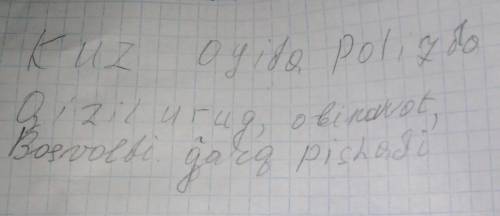 Kuz oyida polizda
Qizil urug, obinavot,
Bosvoldi ğarq pishadi